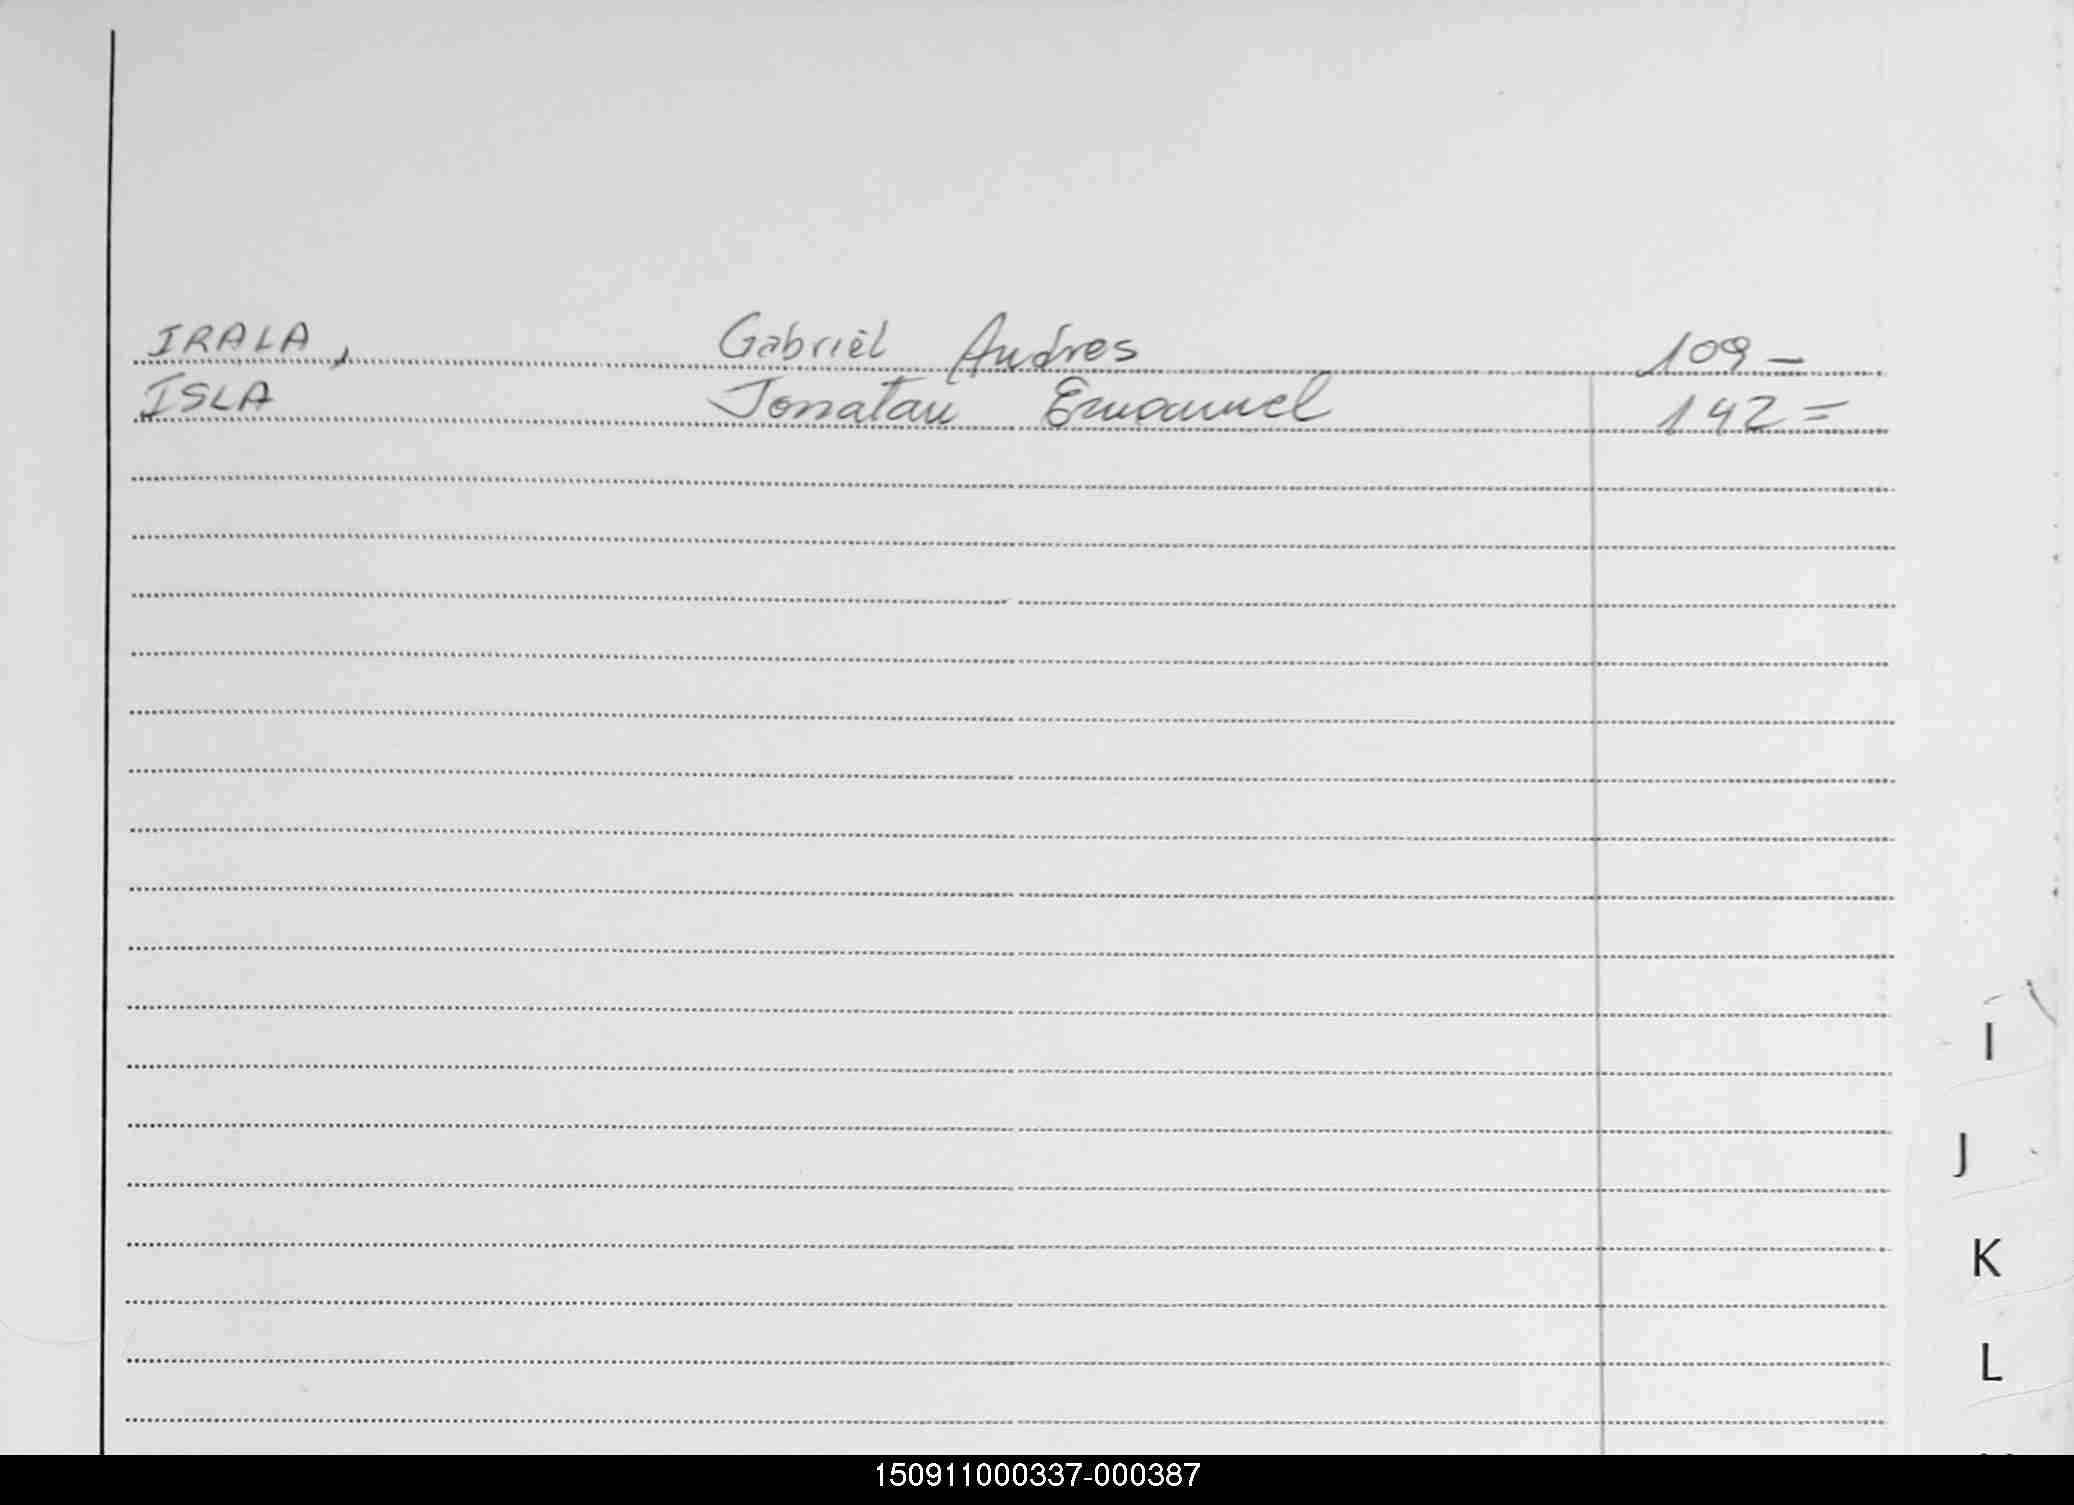 IRALA, Gabriel Andres 109 -
ISLA Jonatan Emanuel 142 =
I
J
K
L
150911000337-000387